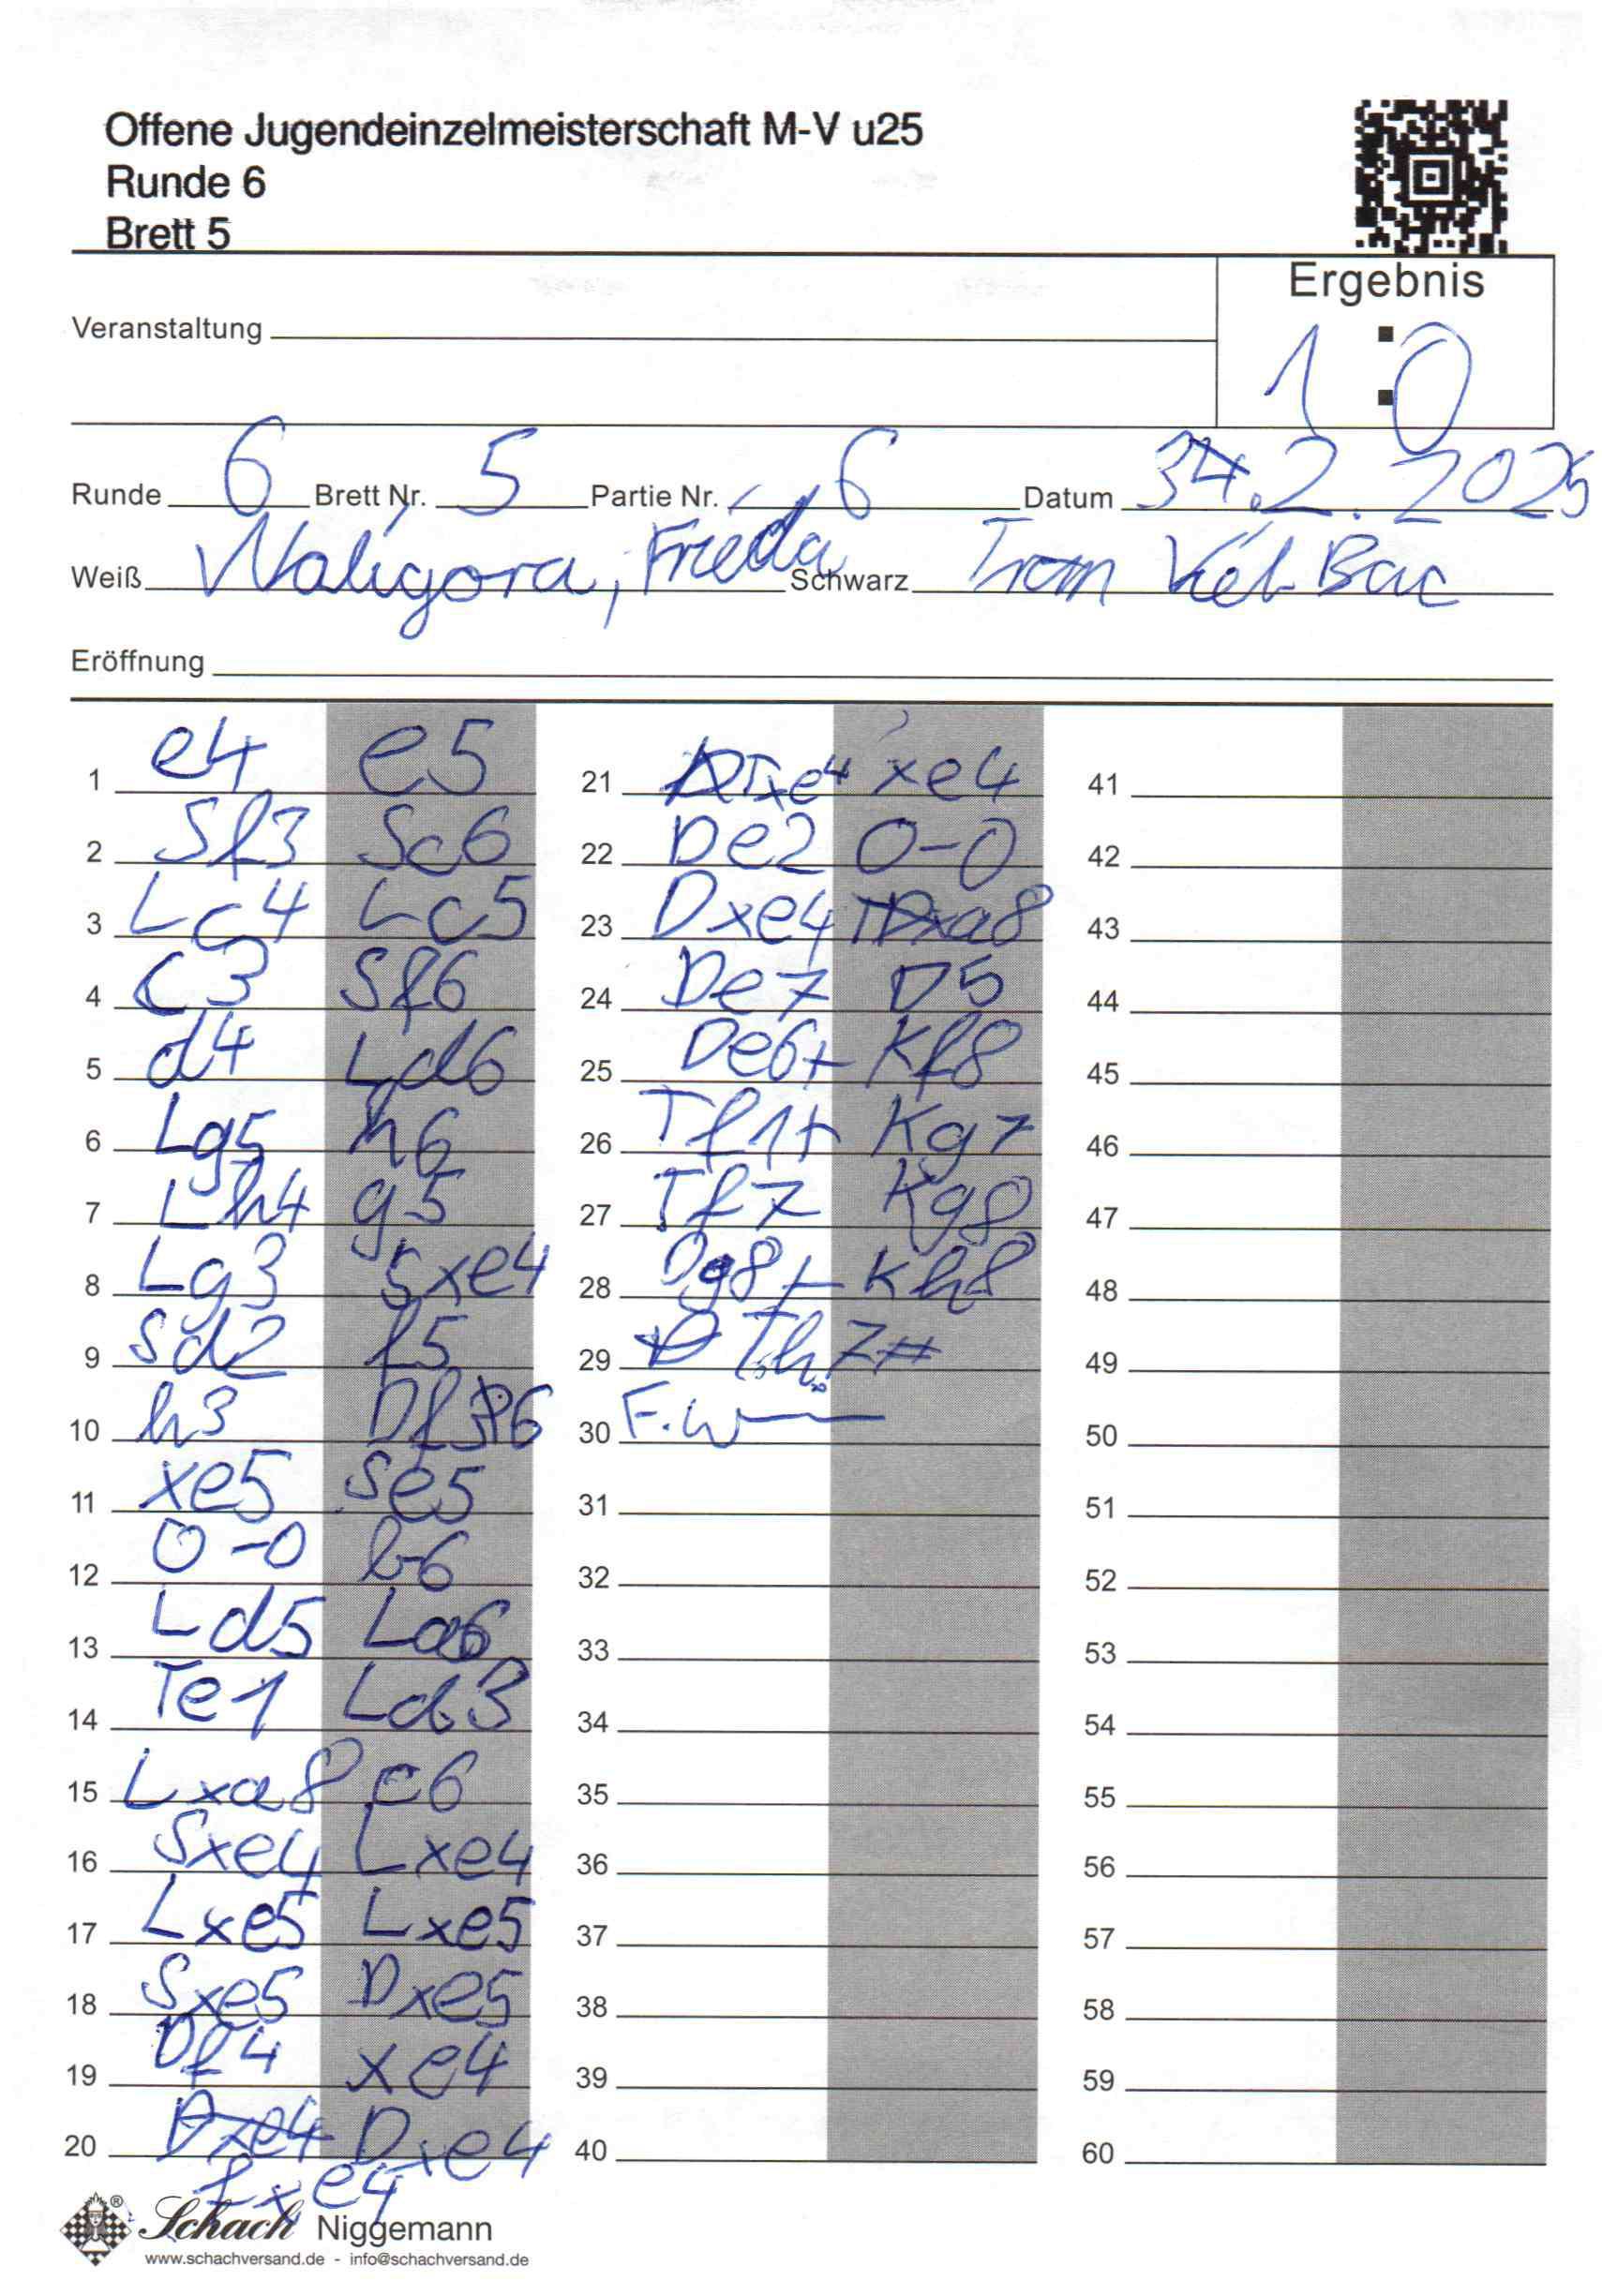 Offene Jugendeinzelmeisterschaft M-V u25
Runde 6
Brett 5
Ergebnis
1 : 0
Veranstaltung
Runde 6 Brett Nr. 5 Partie Nr. 6 Datum 2. 2025
Weiß Waligora, Frieda Schwarz Viet Bac
Eröffnung
1 e4 e5
2 Sf3 Sc6
3 Lc4 Lc5
4 c3 Sf6
5 d4 Ld6
6 Lg5 h6
7 Lh4 g5
8 Lg3 Sxe4
9 Sd2 f5
10 h3 Df6
11 xe5 Se5
12 0-0 b6
13 Ld5 La6
14 Te1 Ld3
15 Lxa8 c6
16 Sxe4 Lxe4
17 Lxe5 Lxe5
18 Sxe5 Dxe5
19 Df4 xe4
20 Dxe4 Dxe4
Lxe4
21 Txe4 xe4
22 De2 0-0
23 Dxe4 Txa8
24 De7 D5
25 De6+ Kf8
26 Tf1+ Kg7
27 Tf7 Kg8
28 Dg8+ Kh8
29 Th7#
30 F.W
31
32
33
34
35
36
37
38
39
40
41
42
43
44
45
46
47
48
49
50
51
52
53
54
55
56
57
58
59
60
Schach Niggemann
www.schachversand.de - info@schachversand.de